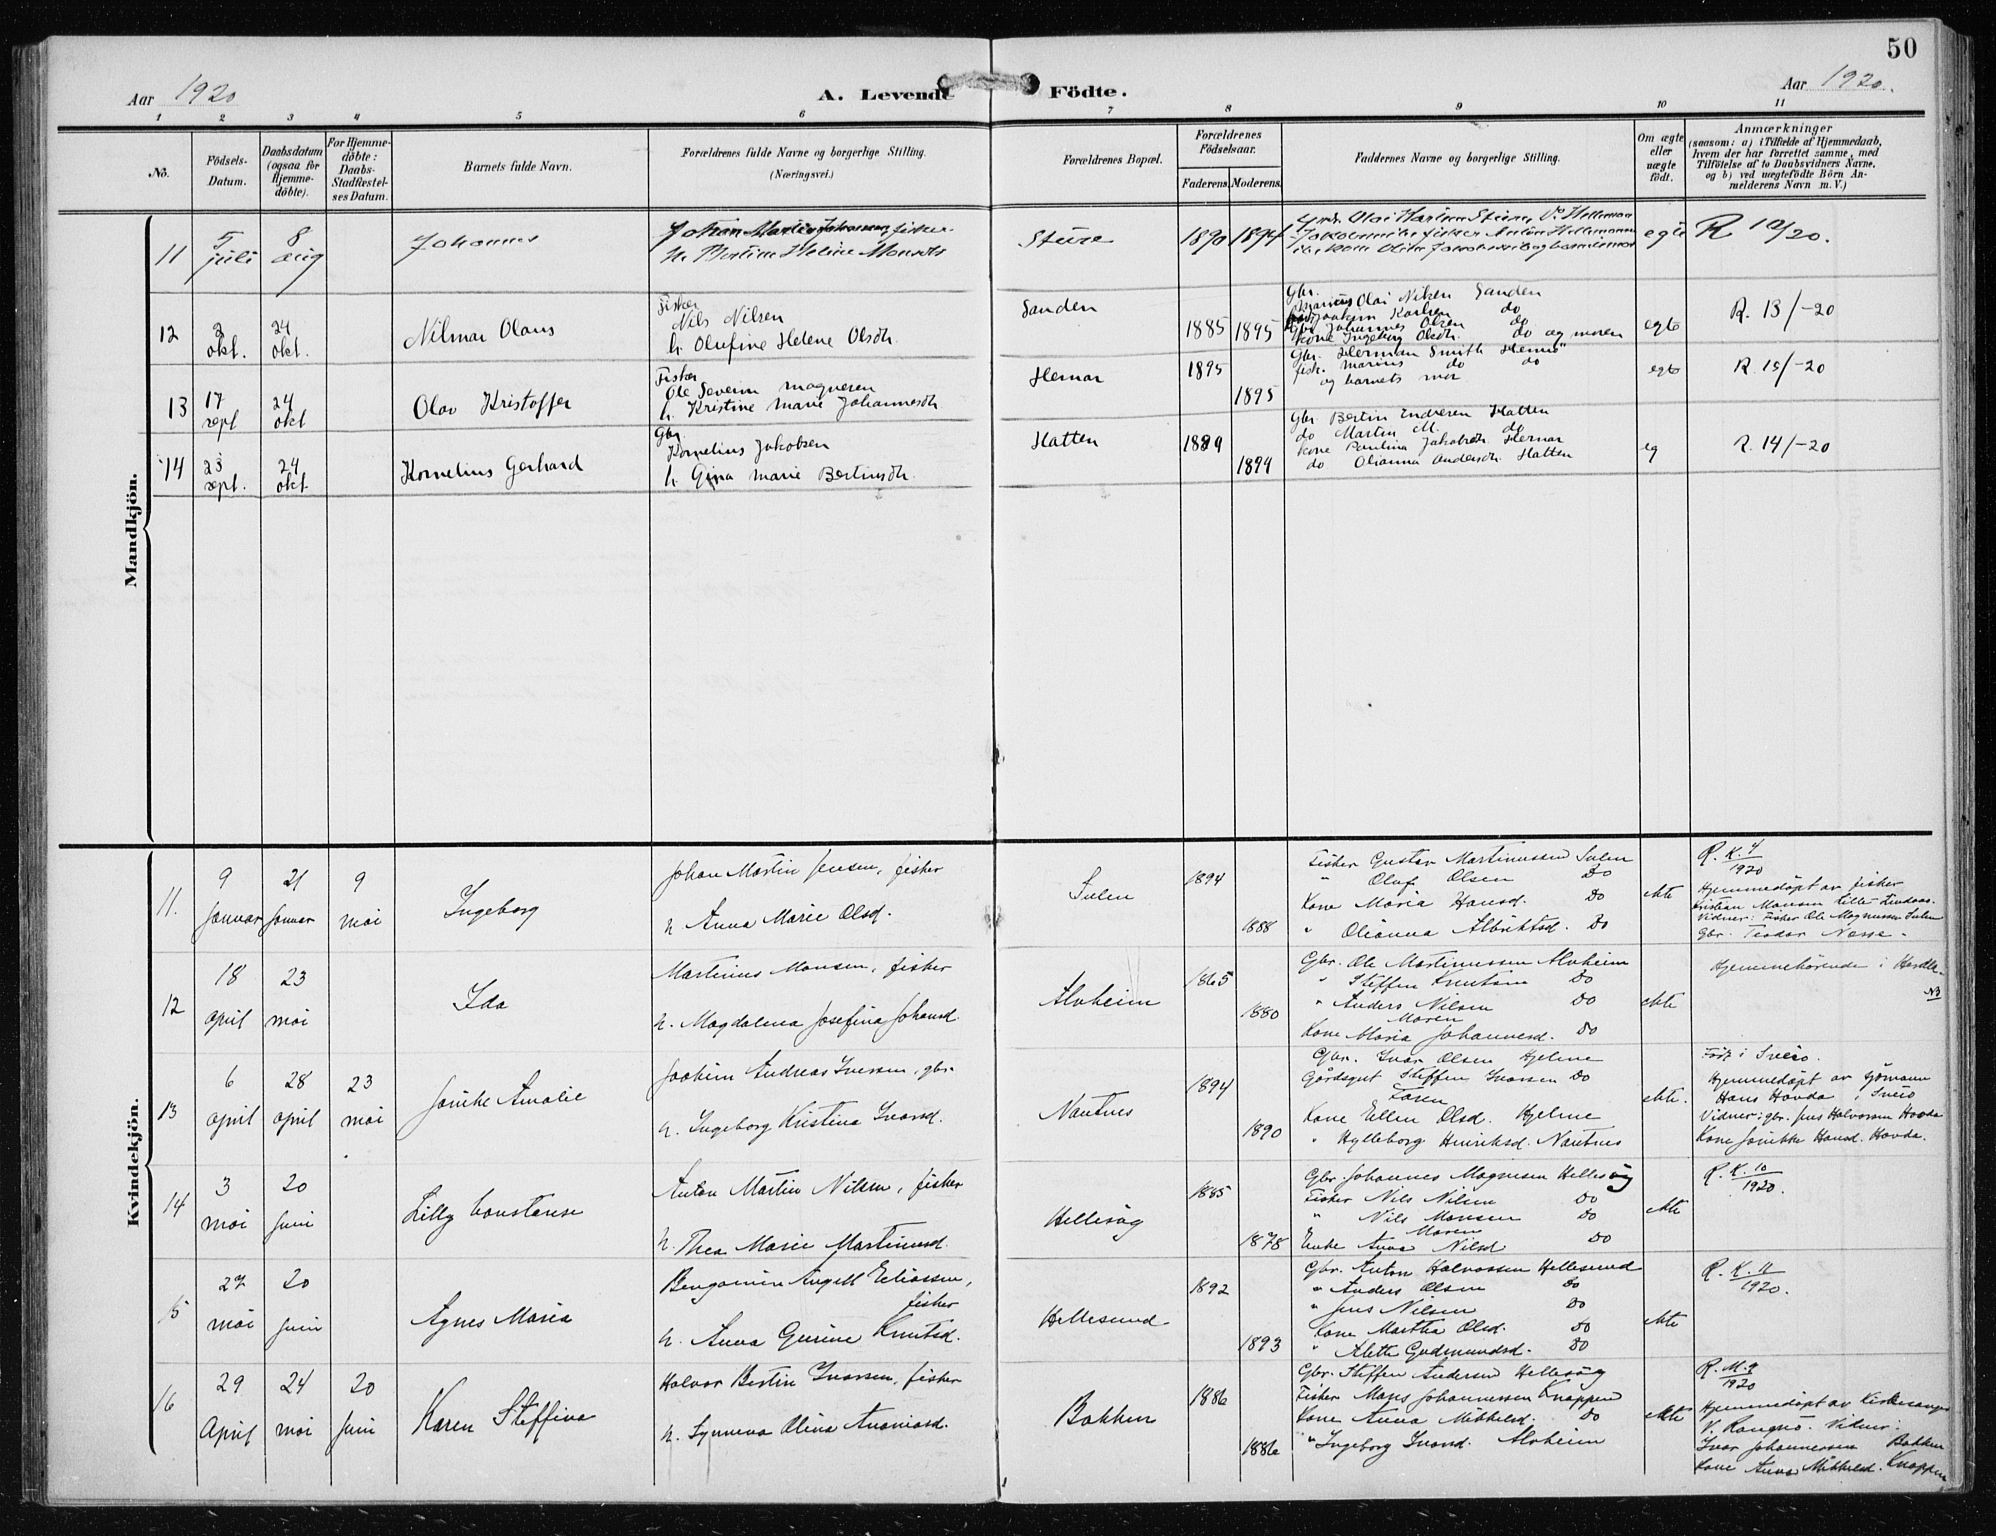 50
Aar 1920
A. Levende Födte.
Aar 1920.
1 2 3 4 5 6 7 8 9 10 11
No.
Födsels-Datum.
Daabsdatum (ogsaa for Hjemme-döbte).
For Hjemme-döbte: Daabs-Stadfæstel-ses Datum.
Barnets fulde Navn.
Forældrenes fulde Navne og borgerlige Stilling.
(Næringsvei.)
Forældrenes Bopæl.
Forældrenes Födselsaar.
Faderens. Moderens.
Faddernes Navne og borgerlige Stilling.
Om ægte eller uægte födt.
Anmærkninger
(saasom: a) i Tilfælde af Hjemmedaab, hvem der har forrettet samme, med Tilföielse af to Daabsvidners Navne, og b) ved uægtefödte Börn An-melderens Navn m. V.)
Mandkjön.
11 5 juli 8 aug Johannes
Johan Martin Johannessen, fisker
h. Bertine Helene Monsdtr
Sture 1890 1894
egte R 12/20.
12 2 okt. 24 okt. Nilmar Olaus
Fisker
Nils Nilsen
h. Olufine Helene Olsdtr.
Sanden 1885 1895
Gbr.
Marius Olai Nilsen Sanden
Joakim Karlsen do
Gbr Johannes Olsen do
kone Ingeborg Olsdtr. do og moren
egte R. 13/-20
13 17 sept 24 okt Olav Kristoffer
Fisker
Ole Severin Magnesen
h. Kristine Marie Johannesdtr
Hernar 1895 1895
Gbr. Herman Smith Hernar
fisk. Marius do do
og barnets mor
egte R. 15/-20
14 23 sept. 24 okt. Kornelius Gerhard
Gbr.
Kornelius Jakobsen
h. Gina Marie Bertinsdtr.
Hatten 1889 1894
Gbr Bertin Endresen Hatten
do Martin M. do
kone Paulina Jakobsdtr. Hernar
do Olianna Andersdtr. Hatten
eg R. 14/-20
Kvindekjön.
11. 9 Januar 21 Januar 9 mai Ingeborg
Johan Martin Jensen, fisker
h. Anna Marie Olsd.
Sulen 1894 1888
Fisker Gustav Martinussen Sulen
" Oluf Olsen Do
Kone Maria Hansd. Do
" Olianna Albriktsd. Do
ekte
R. K. 4/1920
Hjemmedöpt av fisker
Kristian Monsen Lille Lindaas.
Vidner: Fisker Ole Magnussen Sulen
Gbr. Teodor Næsse.
12 18 april 23 mai Ida
Martinus Monsen, fisker
h. Magdalena Josefina Johansd.
Alvheim 1865 1880
Gbr. Ole Martinussen Alvheim
" Steffen Knutsen Do
" Anders Nilsen Do
Moren
Kone Maria Johannesd. Do
ekte
Hjemmehörende i Herdla.
NB
13 6 april 28 april 23 mai Jonike Amalie
Joakim Andreas Iversen, gbr.
h. Ingeborg Kristina Ivarsd.
Nautnes 1894 1890
Gbr. Ivar Olsen Hjelme
Gårdsgut Steffen Ivarsen Do
Faren
Kone Ellen Olsd. Hjelme
" Hylleborg Henriksd. Nautnes
ekte.
Født i Sveio.
Hjemmedöpt av sjömann
Hans Hovda i Sveio
Vidner: gbr. Jens Halvorsen Hovda
Kone Jonikke Hansd. Hovda.
14 3 mai 20 Juni Lilly Constanse
Anton Martin Nilsen, fisker
h. Thea Marie Martinusd.
Hellesöy 1885 1878
Gbr Johannes Magnesen Hellesöy
Fisker Nils Nilsen Do
" Nils Monsen Do
Moren
Enke Anna Nilsd Do
ekte
R. K. 10/1920.
15 27 mai 20 Juni Agnes Maria
Benjamin Angell Eliassen,
fisker
h. Anna Gurine Knutsd.
Hellesund 1892 1893
Gbr. Anton Halvorsen Hellesund
" Anders Olsen Do
" Jens Nilsen Do
Kone Martha Olsd. Do
" Alette Gudmundsd. Do
ekte
R. K. 11/1920.
16 29 April 24 mai 20 Juni Karen Steffina
Halvor Bertin Ivarsen, fisker
h. Synneva Olina Ananiasd.
Bakken 1886 1886
Gbr. Steffen Andersen Hellesöy
Fisker Mons Johannessen Knappen
Kone Anna Mikkelsd. Do
" Ingeborg Ivarsd. Alvheim
ekte
R. M. 9/1920
Hjemmedöpt av Kirkesanger
V. Rongnö. Vidner:
Ivar Johannessen Bakken
Kone Anna Mikkelsd. Knappen